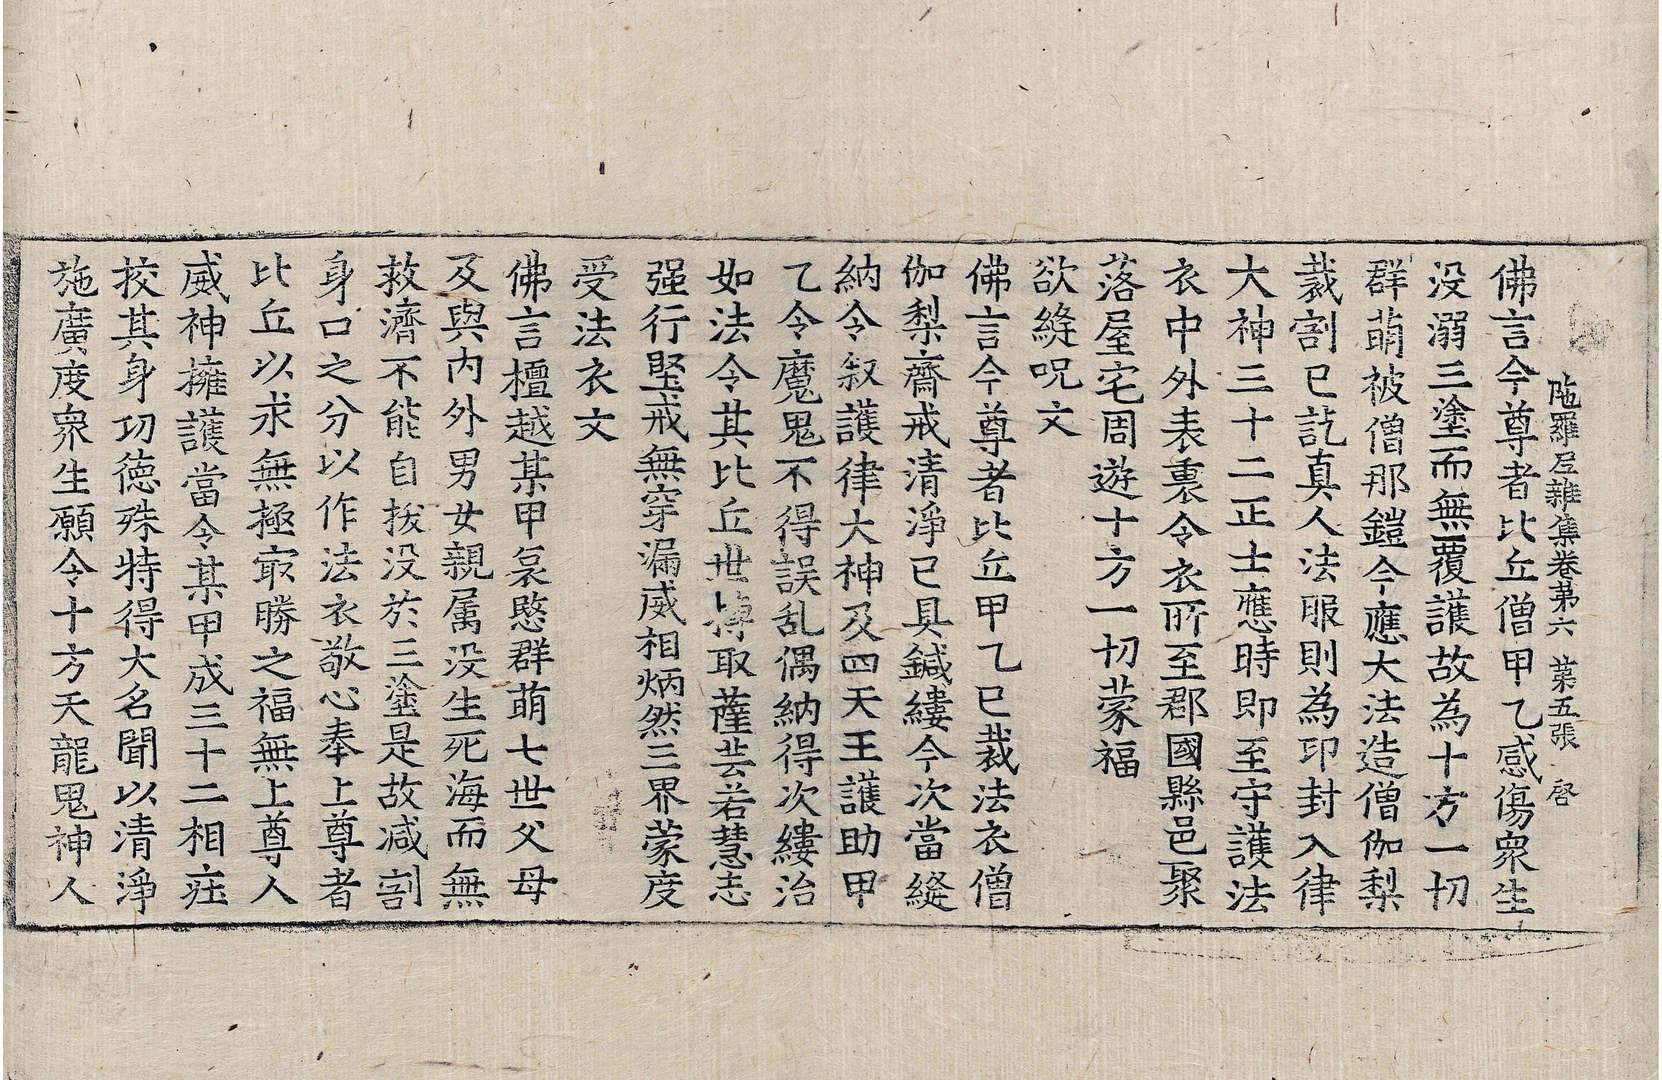 陁羅尼雜集卷第六　第五張　啓
佛言今尊者比丘僧甲乙感傷衆生
没溺三塗而無覆護故為十方一切
群萌被僧那鎧今應大法造僧伽梨
裁割已訖真人法服則為印封入律
大神三十二正士應時即至守護法
衣中外表裏令衣所至郡國縣邑聚
落屋宅周遊十方一切蒙福
欲縫呪文
佛言今尊者比丘甲乙已裁法衣僧
伽梨齋戒清淨已具鍼縷今次當縫
納令叙護律大神及四天王護助甲
乙令魔鬼不得誤乱偶納得次縷治
如法令其比丘世博取薩芸若慧志
强行堅戒無穿漏威相炳然三界蒙度
受法衣文
佛言檀越某甲哀愍群萌七世父母
及與内外男女親属没生死海而無
救濟不能自拔没於三塗是故减割
身口之分以作法衣敬心奉上尊者
比丘以求無極㝡勝之福無上尊人
威神擁護當令某甲成三十二相庄
挍其身功徳殊特得大名聞以清淨
施廣度衆生願令十方天龍鬼神人